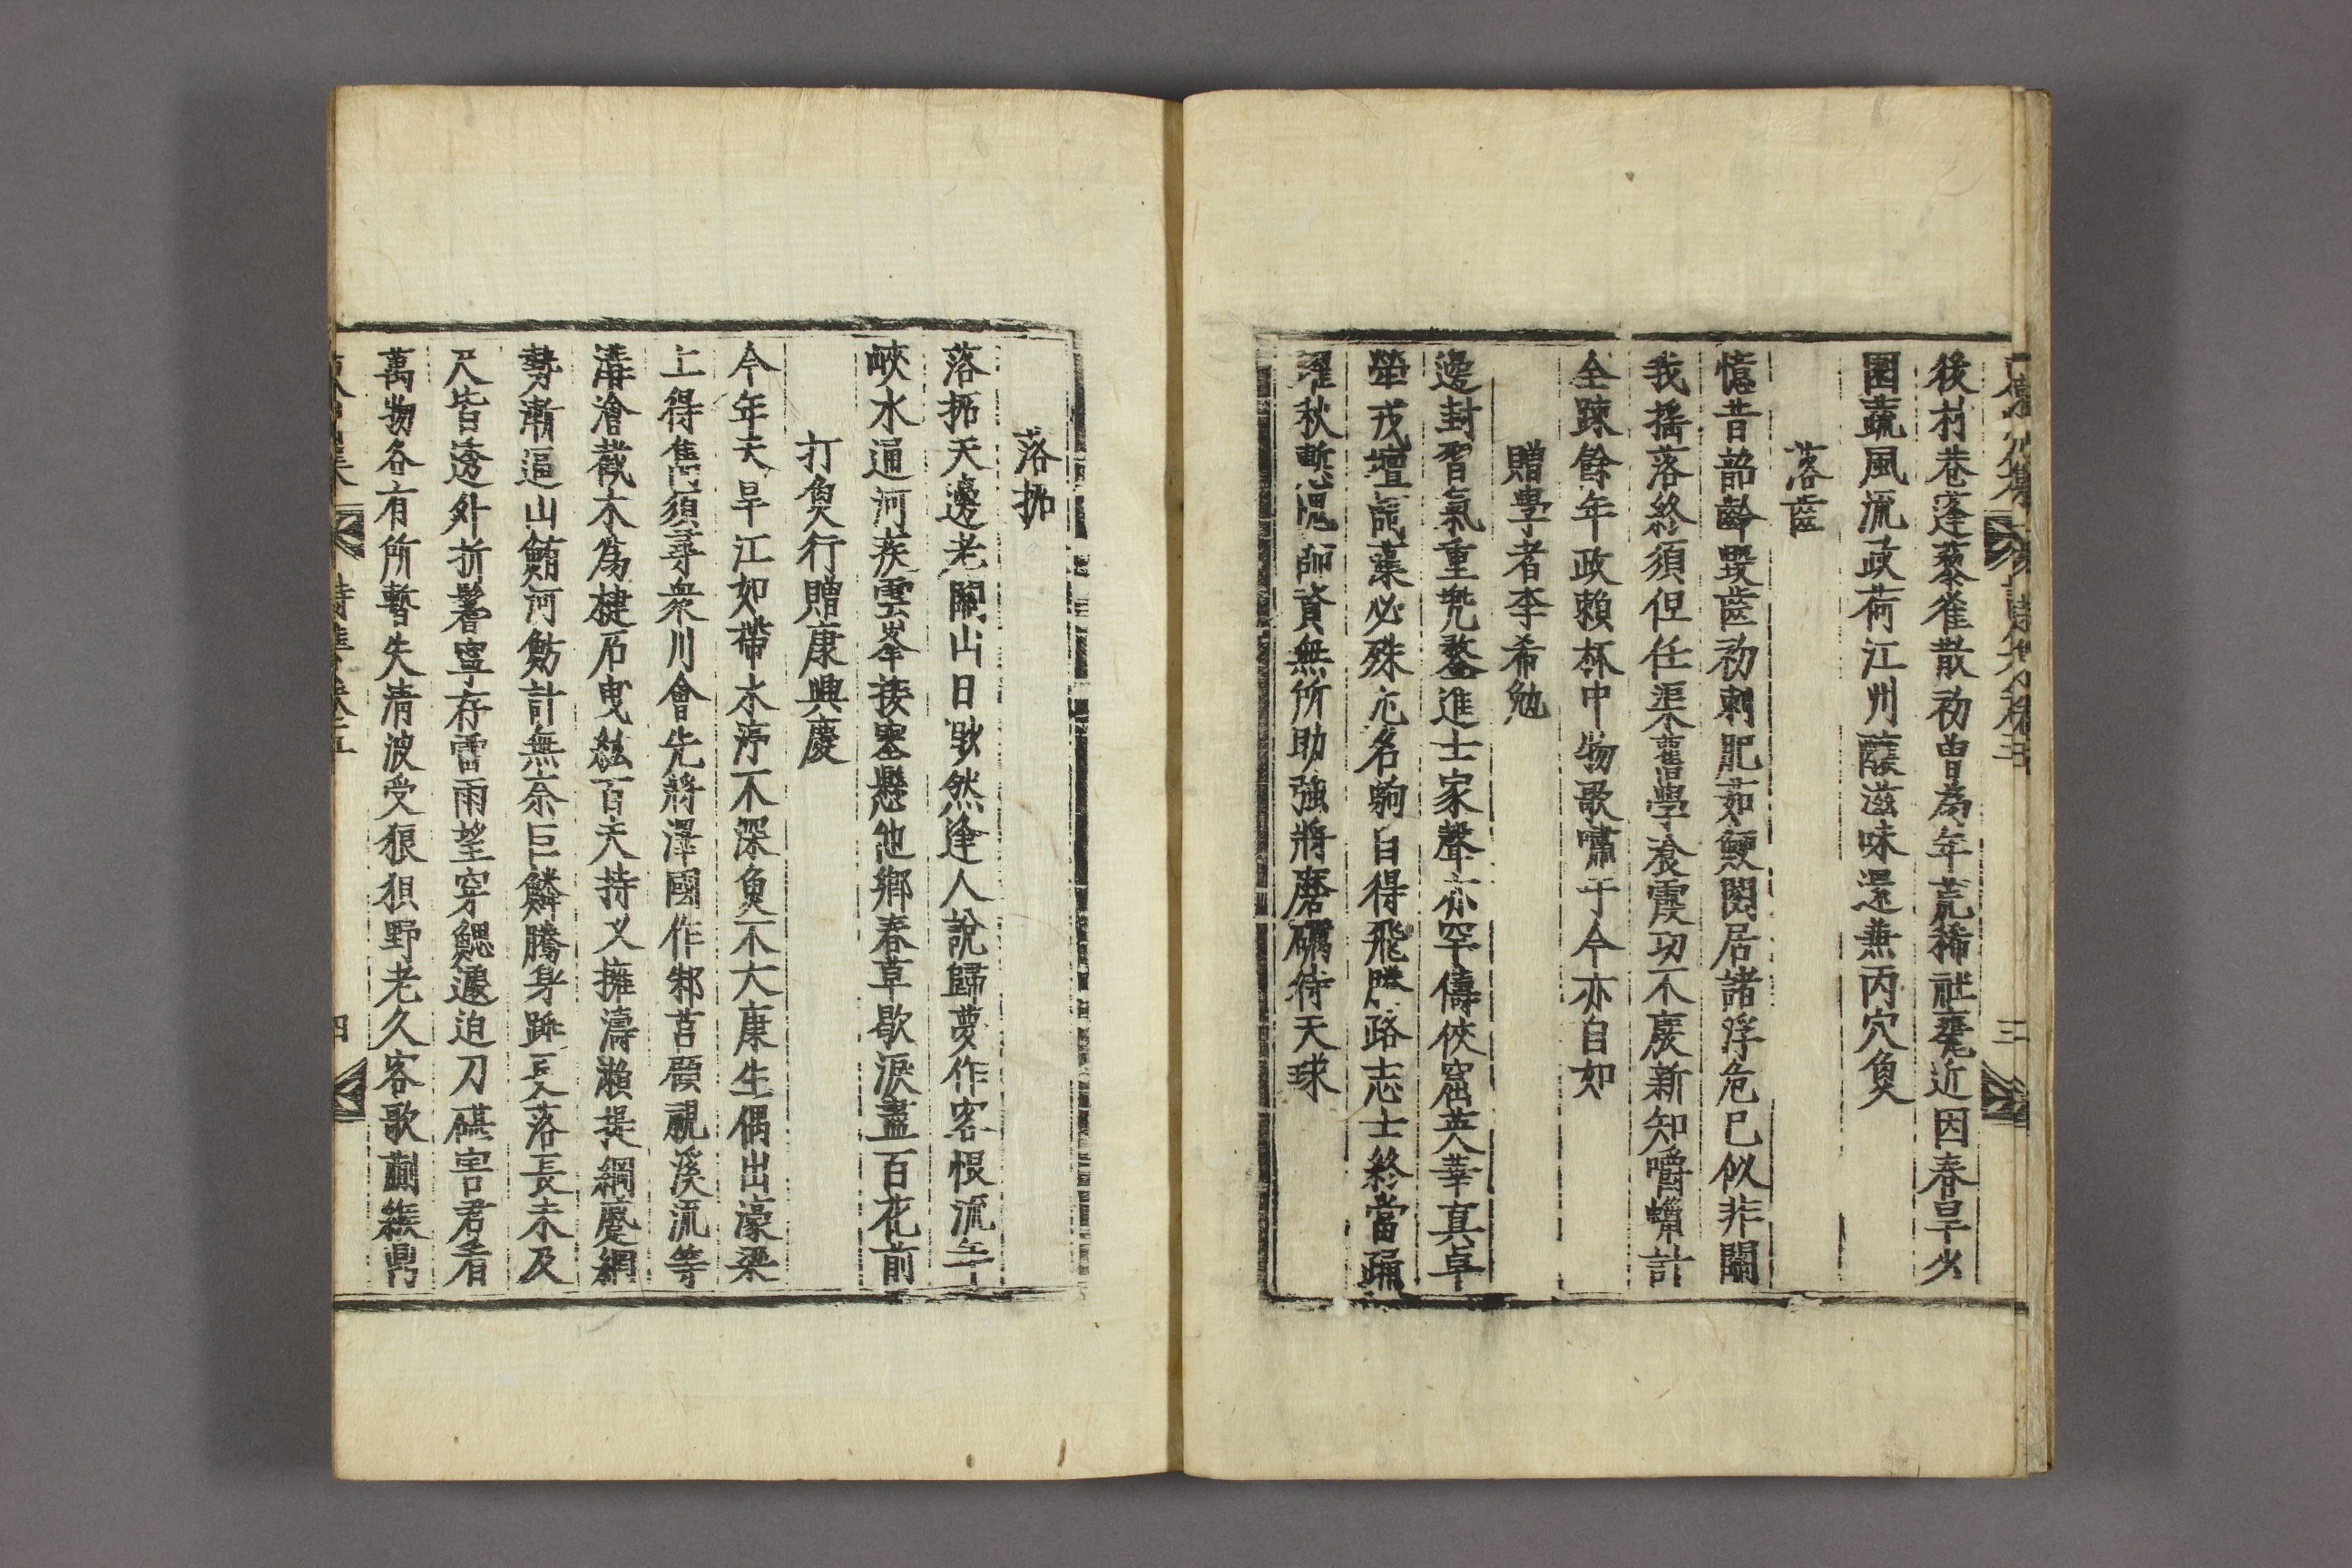 後村巷蓬藜雀散初曾為年荒稀社甕近因春旱少
園蔬風流政荷江州釀滋味還兼丙穴魚
落齒
憶昔韶齡毀齒初剌肥茹鯁閱居諸浮危已似非關
我搖落終須但任渠舊學飡霞功不廢新知嚼蠟計
全疎餘年政賴杯中物歌嘯于今亦自如
贈學者李希勉
邊封習氣重兜鍪進士家聲亦罕儔俠窟英華真卓
犖戎壇詞藻必殊尤名駒自得飛騰路志士終當踊
躍秋慙愧師資無所助強將磨礪待天球
落拓
落拓天邊老關山日欻然逢人說歸夢作客恨流年
峽水通河疾雲峯接塞懸他鄉春草歇淚盡百花前
打魚行贈康興慶
今年天旱江如帶水渟不深魚不大康生偶出濠梁
上得雋須尋衆川會先將澤國作邾莒顧視溪流等
溝澮截木為楗石曳紘百夫持叉擁濤瀨提綱蹙網
勢漸逼山鮪河魴計無奈巨鱗騰身跡豆落長未及
尺皆透外折鬐寧存雷雨望穿鰓遽迫刀碪害君看
萬物各有所暫失清波受狼狽野老久客歌蒯緱臠